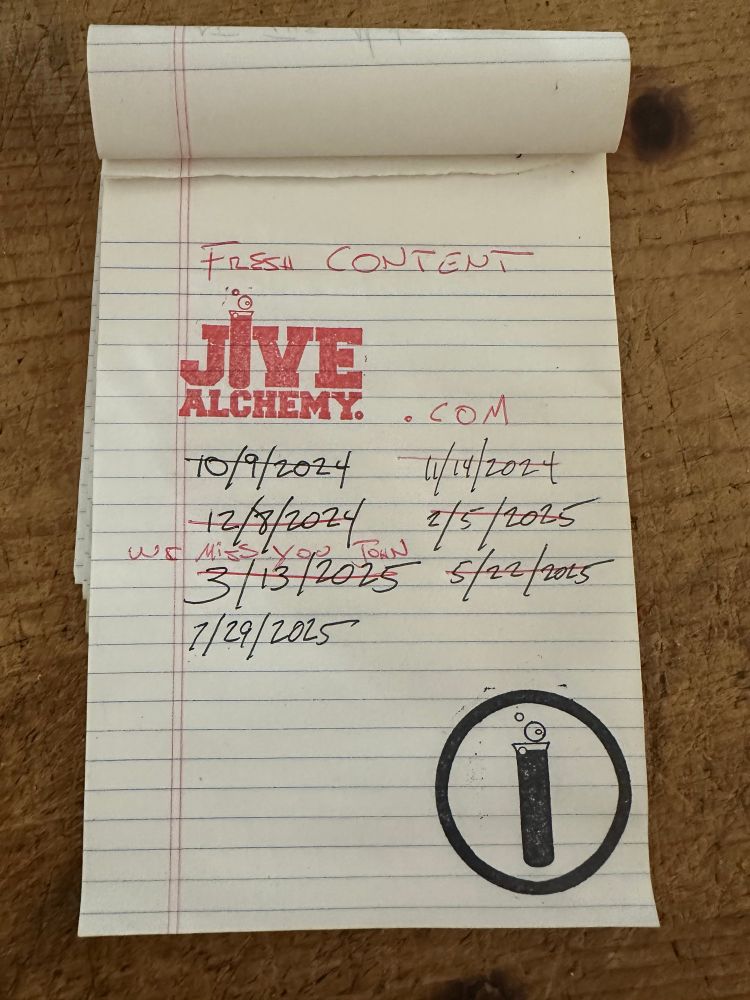 FRESH CONTENT
JIVE
ALCHEMY.
.COM
10/9/2024 11/14/2024
12/8/2024 2/5/2025
WE MISS YOU JOHN
3/13/2025 5/22/2025
7/29/2025